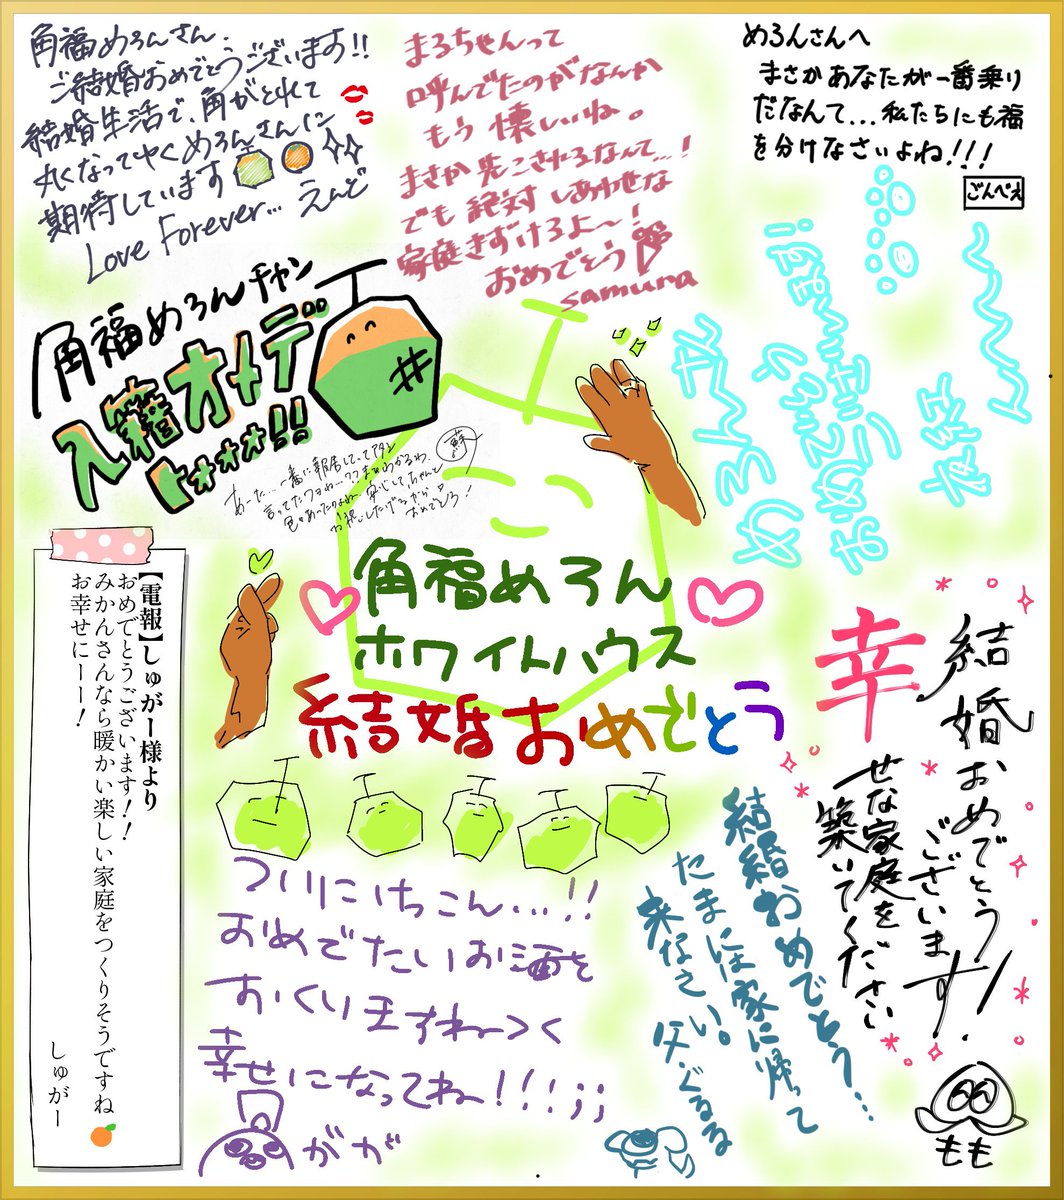 角福めろんさん、
ご結婚おめでとうございます!!
結婚生活で、角がとれて
丸くなってゆくめろんさんに
期待しています
Love Forever... えんど
まろちゃんって
呼んでたのがなんか
もう懐しいね。
まさか先こされるなんて...!
でも絶対しあわせな
家庭きずけるよ〜!
おめでとう
samura
めろんさんへ
まさかあなたが一番乗り
だなんて...私たちにも福
を分けなさいよね!!!
ごんべえ
角福めろんチャン
入籍オメデ
トォォォ!!
めろんさん
おめでとう
ございます!
夜紅
角福めろん
ホワイトハウス
結婚おめでとう
【電報】しゅがー様より
おめでとうございます!!
みかんさんなら暖かい楽しい家庭をつくりそうですね
お幸せにーー!
しゅがー
結婚おめでとう!
ございます!
幸
せな家庭を
築いてください
もも
結婚おめでとう...
たまには家に帰って
来なさい。
父・ぐるる
ついにけっこん...!!
おめでたいお酒を
おくりますね〜つく
幸せになってね〜!!!;;
ががが